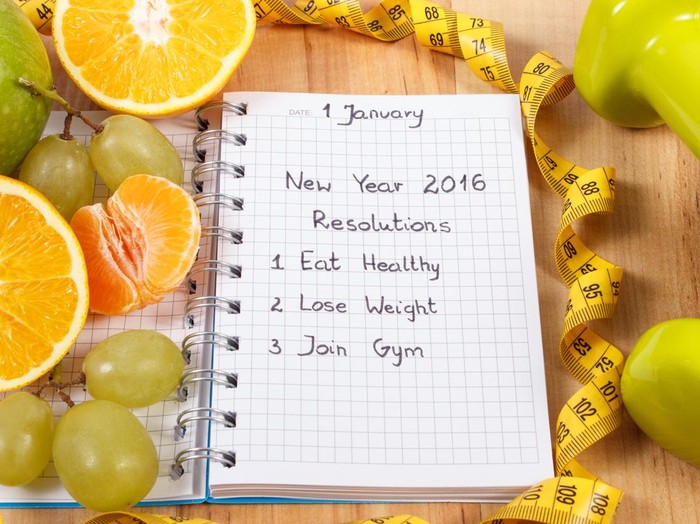 DATE: 1 January
New Year 2016
Resolutions
1 Eat Healthy
2 Lose Weight
3 Join Gym
44
85
68
73
69
74
75
80
88
89
60
95
53
52
101
102
103
109
108